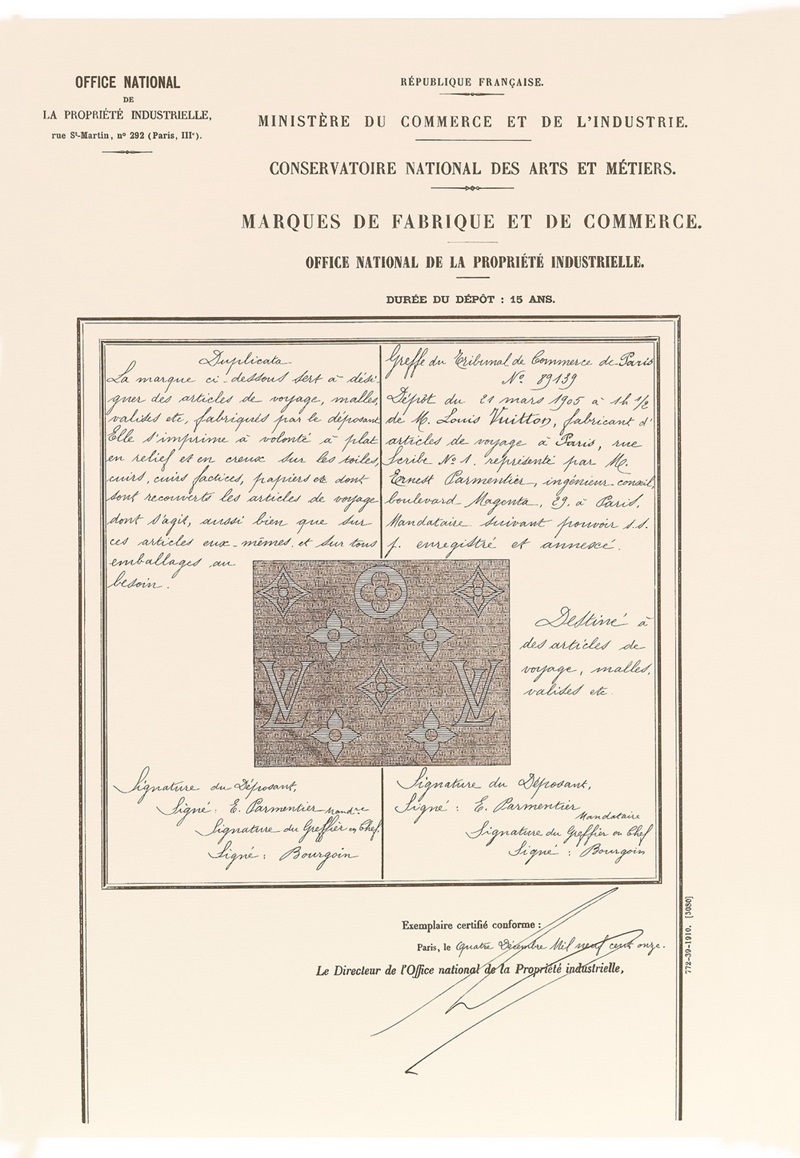 OFFICE NATIONAL
DE
LA PROPRIÉTÉ INDUSTRIELLE,
rue St-Martin, nº 292 (Paris, IIIe).
RÉPUBLIQUE FRANÇAISE.
MINISTÈRE DU COMMERCE ET DE L'INDUSTRIE.
CONSERVATOIRE NATIONAL DES ARTS ET MÉTIERS.
MARQUES DE FABRIQUE ET DE COMMERCE.
OFFICE NATIONAL DE LA PROPRIÉTÉ INDUSTRIELLE.
DURÉE DU DÉPÔT : 15 ANS.
Duplicata
La marque ci-dessous sert à dési-
gner des articles de voyage, malles,
valises etc, fabriqués par le déposant
Elle s'imprime à volonté à plat
en relief et en creux sur les toiles,
cuirs, cuirs factices, papiers etc dont
sont recouverts les articles de voyage
dont s'agit, aussi bien que sur
ces articles eux-mêmes et sur tous
emballages au
besoin.
Greffe du Tribunal de Commerce de Paris
Nº 89139
Dépôt du 21 mars 1905 à 1h 1/2
de M. Louis Vuitton, fabricant d'
articles de voyage à Paris, rue
Scribe Nº 1. représenté par M.
Ernest Parmentier, ingénieur-conseil,
boulevard Magenta, 29. à Paris.
Mandataire suivant pouvoir s.s.
p. enregistré et annexé.
LV LV
Destiné à
des articles de
voyage, malles,
valises etc
Signature du Déposant,
Signé. E. Parmentier Mandre
Signature du Greffier en Chef
Signé : Bourgoin
Signature du Déposant,
Signé : E. Parmentier
Mandataire
Signature du Greffier en Chef
Signé : Bourgoin
Exemplaire certifié conforme :
Paris, le Quatre Décembre Mil neuf cent onze.
Le Directeur de l'Office national de la Propriété industrielle,
772-39-1910. [3080]